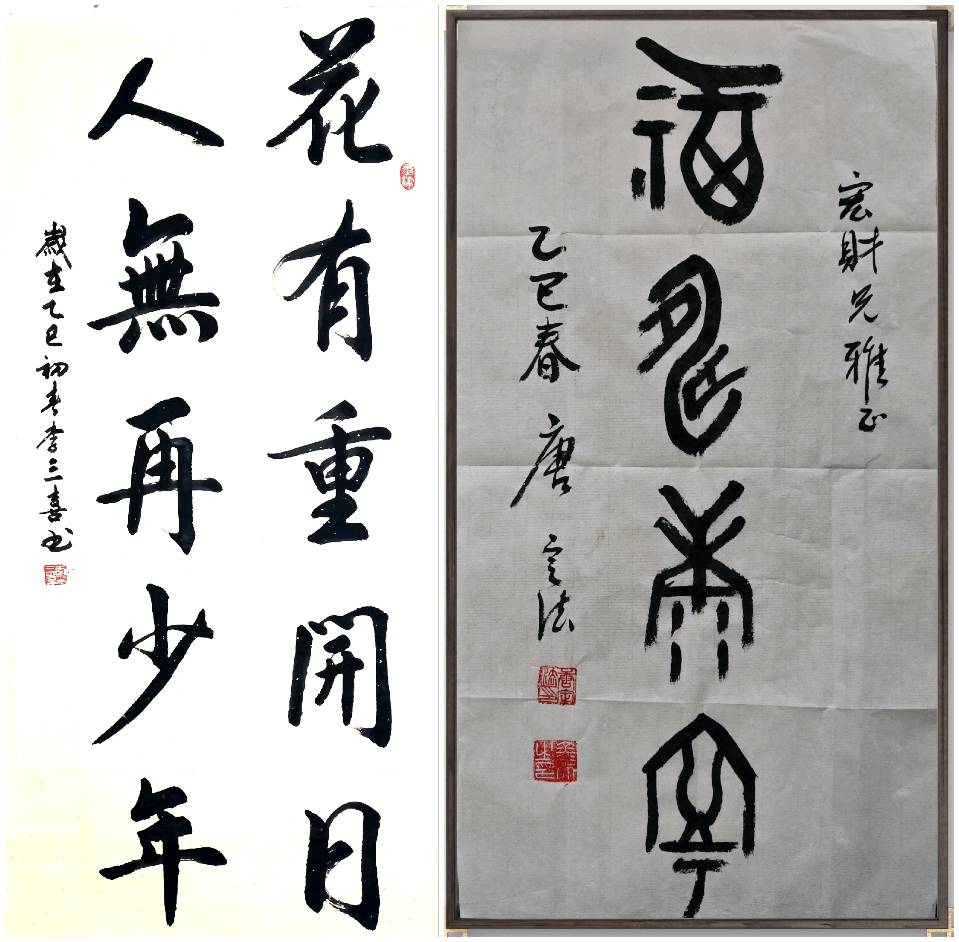 花有重開日
人無再少年
歲在乙巳初春李三喜书
宏財兄雅正
福壽康寧
乙巳春 唐 法